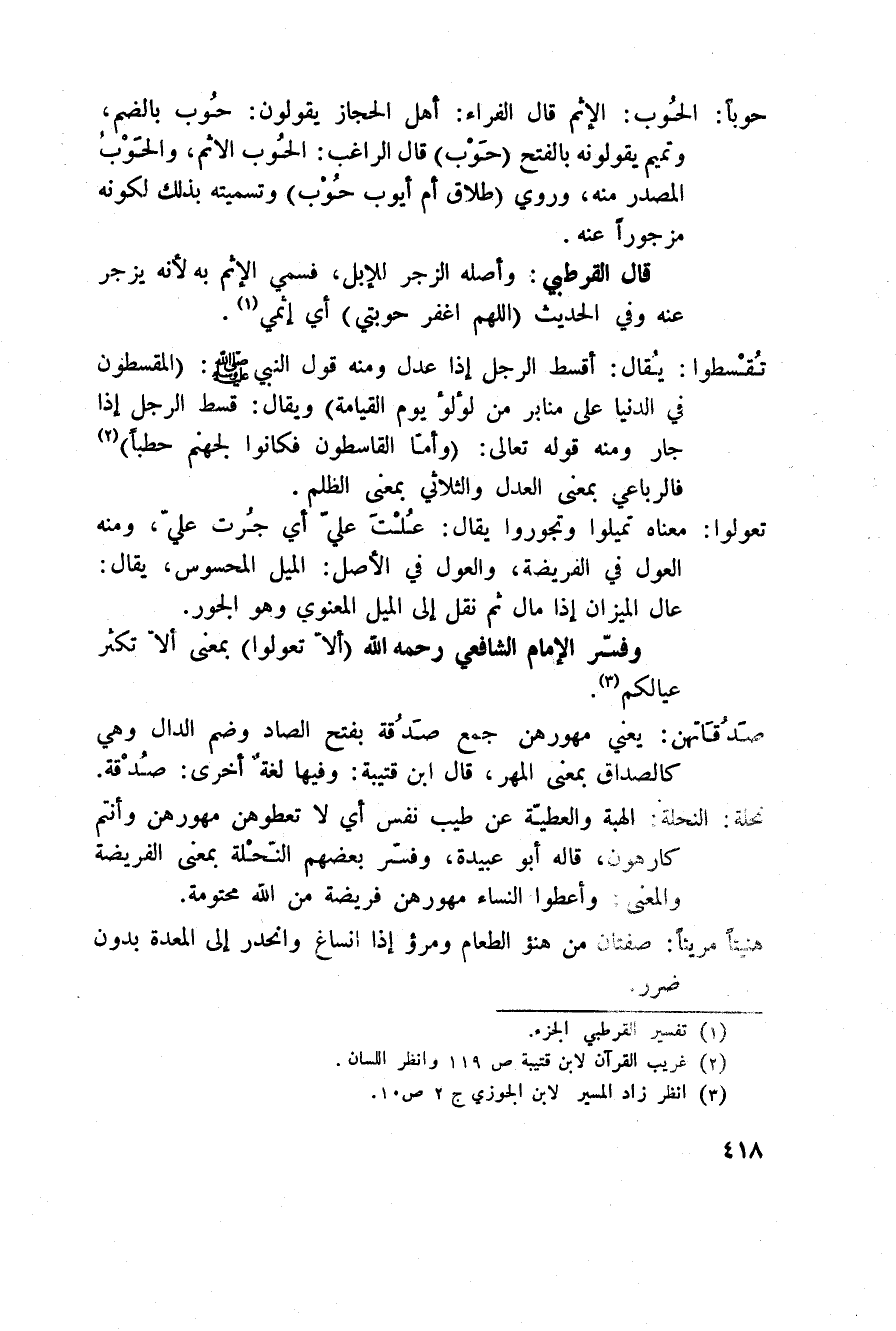 حوباً: الحُوب: الإثم قال الفراء: أهل الحجاز يقولون: حُوب بالضم،
وتميم يقولونه بالفتح (حَوْب) قال الراغب: الحُوب الاثم، والحَوْبُ
المصدر منه، وروي (طلاق أم أيوب حُوْب) وتسميته بذلك لكونه
مزجوراً عنه.
قال القرطبي: وأصله الزجر للإبل، فسمي الإثم به لأنه يزجر
عنه وفي الحديث (اللهم اغفر حوبتي) أي إثمي(١).
تُقْسطوا: يُقال: أقسط الرجل إذا عدل ومنه قول النبي ﷺ: (المقسطون
في الدنيا على منابر من لؤلؤ يوم القيامة) ويقال: قسط الرجل إذا
جار ومنه قوله تعالى: (وأمّا القاسطون فكانوا لجهنم حطباً)(٢)
فالرباعي بمعنى العدل والثلاثي بمعنى الظلم.
تعولوا: معناه تميلوا وتجوروا يقال: عُلْتَ عليّ أي جُرت عليّ، ومنه
العول في الفريضة، والعول في الأصل: الميل المحسوس، يقال:
عال الميزان إذا مال ثم نقل إلى الميل المعنوي وهو الجور.
وفسّر الإمام الشافعي رحمه الله (ألاّ تعولوا) بمعنى ألاّ تكثر
عيالكم(٣).
صَدُقَاتهن: يعني مهورهن جمع صَدُقة بفتح الصاد وضم الدال وهي
كالصداق بمعنى المهر، قال ابن قتيبة: وفيها لغةٌ أخرى: صُدْقة.
نحلة: النحلة: الهبة والعطيّة عن طيب نفس أي لا تعطوهن مهورهن وأنتم
كارهون، قاله أبو عبيدة، وفسّر بعضهم النّحْلة بمعنى الفريضة
والمعنى: وأعطوا النساء مهورهن فريضة من الله محتومة.
هنيئاً مريئاً: صفتان من هنؤ الطعام ومرؤ إذا انساغ وانحدر إلى المعدة بدون
ضرر.
(١) تفسير القرطبي الجزء.
(٢) غريب القرآن لابن قتيبة ص ١١٩ وانظر اللسان.
(٣) انظر زاد المسير لابن الجوزي ج ٢ ص١٠.
٤١٨